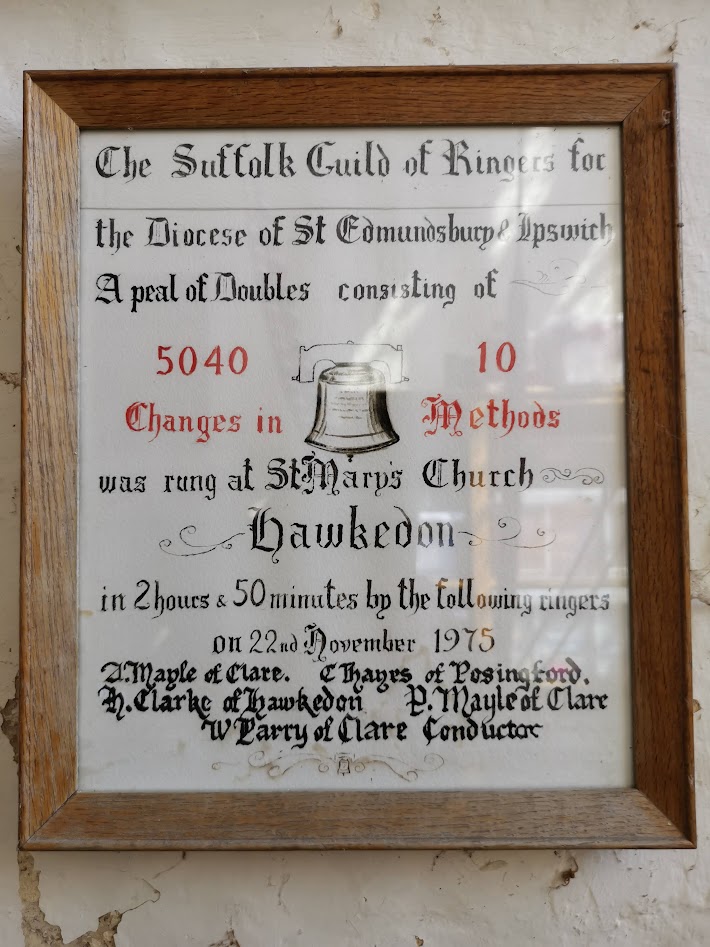 The Suffolk Guild of Ringers for
the Diocese of St Edmundsbury & Ipswich
A peal of Doubles consisting of
5040 10
Changes in Methods
was rung at St Mary's Church
Hawkedon
in 2 hours & 50 minutes by the following ringers
on 22nd November 1975
A. Mayle of Clare. C Hayes of Posingford.
H. Clarke of Hawkedon P. Mayle of Clare
W Parry of Clare Conductor